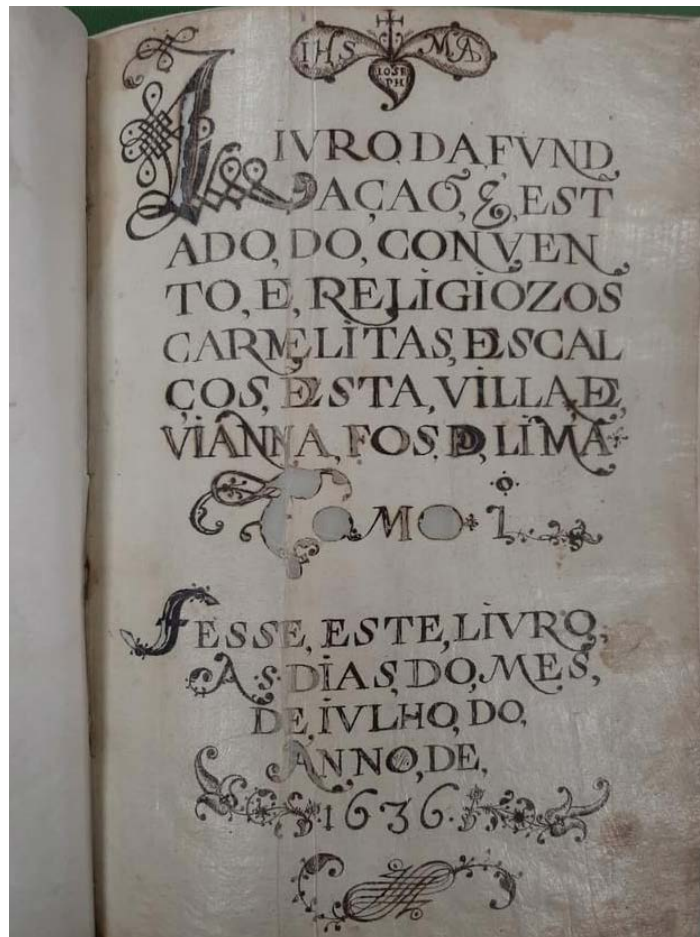 IHS MA
IOSE
PH
LIVRO, DA, FVND
AÇAÕ, &, EST
ADO, DO, CONVEN
TO, E, RELIGIOZOS
CARMELITAS, DESCAL
ÇOS, DESTA, VILLA, DE,
VIANNA, FOS, DO, LIMA
TOMO 1.º
FESSE, ESTE, LIVRO,
AS DIAS, DO, MES,
DE, IVLHO, DO,
ANNO, DE,
1636